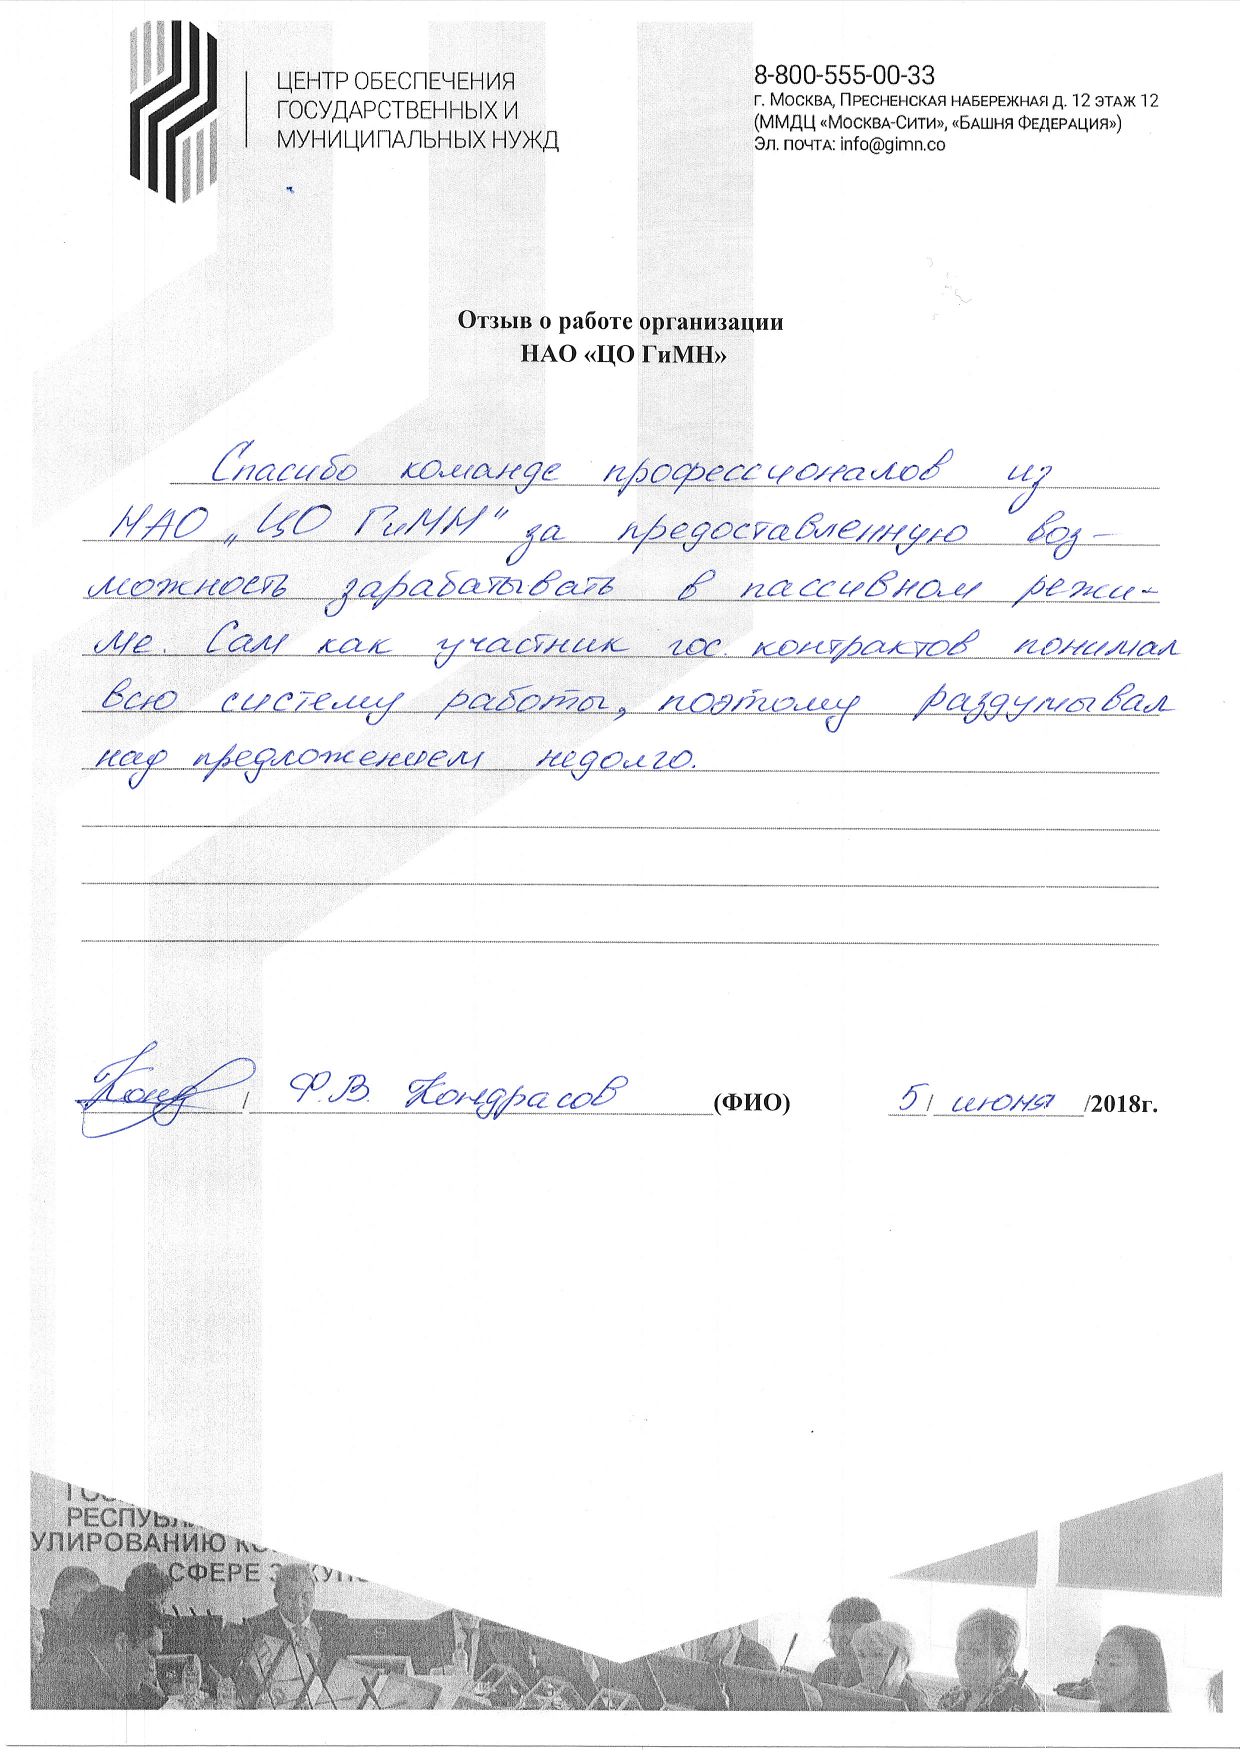 ЦЕНТР ОБЕСПЕЧЕНИЯ
ГОСУДАРСТВЕННЫХ И
МУНИЦИПАЛЬНЫХ НУЖД
8-800-555-00-33
г. Москва, Пресненская набережная д. 12 этаж 12
(ММДЦ «Москва-Сити», «Башня Федерация»)
Эл. почта: info@gimn.co
Отзыв о работе организации
НАО «ЦО ГиМН»
Спасибо команде профессионалов из
НАО „ЦО ГиМН" за предоставленную воз-
можность зарабатывать в пассивном режи-
ме. Сам как участник гос. контрактов понимал
всю систему работы, поэтому раздумывал
над предложением недолго.
/ Ф.В. Кондрасов (ФИО) 5 / июня /2018г.
УЛИРОВАНИЮ
СФЕРЕ